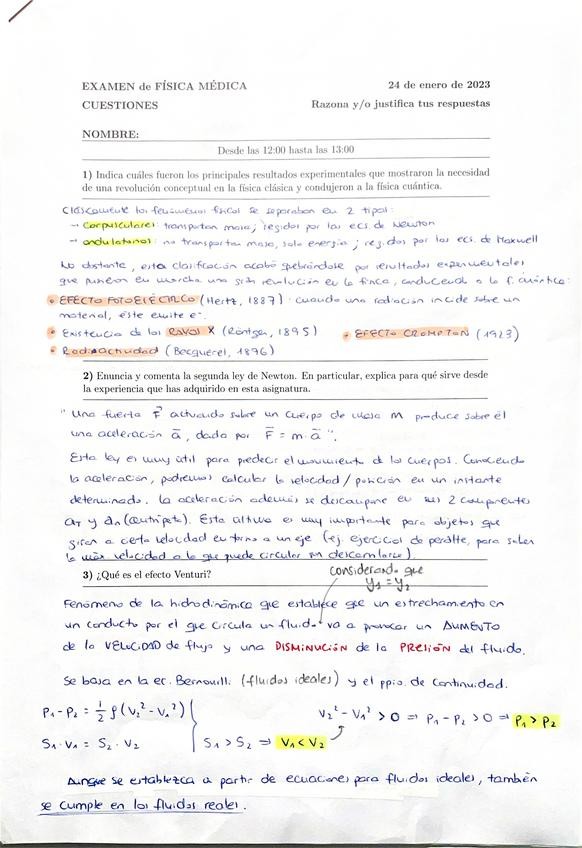 EXAMEN de FÍSICA MÉDICA 24 de enero de 2023
CUESTIONES Razona y/o justifica tus respuestas
NOMBRE:
Desde las 12:00 hasta las 13:00
1) Indica cuáles fueron los principales resultados experimentales que mostraron la necesidad
de una revolución conceptual en la física clásica y condujeron a la física cuántica.
Clásicamente los fenómenos físicos se separaban en 2 tipos:
→ Corpusculares: transportan masa; regidos por las ecs de Newton
→ ondulatorios: no transportan masa, solo energía; regidos por las ecs. de Maxwell
No obstante, esta clasificación acabó quebrándose por resultados experimentales
que pusieron en marcha una gran revolución en la física, conduciendo a la f. cuántica:
• EFECTO FOTOELÉCTRICO (Hertz, 1887): cuando una radiación incide sobre un
material, éste emite e⁻.
• Existencia de los RAYOS X (Röntgen, 1895) • EFECTO CROMPTON (1923)
• Radiactividad (Becquerel, 1896)
2) Enuncia y comenta la segunda ley de Newton. En particular, explica para qué sirve desde
la experiencia que has adquirido en esta asignatura.
"Una fuerza F⃗ actuando sobre un cuerpo de masa m produce sobre él
una aceleración a⃗, dada por F⃗ = m·a⃗".
Esta ley es muy útil para predecir el movimiento de los cuerpos. Conociendo
la aceleración, podremos calcular la velocidad / posición en un instante
determinado. La aceleración además se descompone en sus 2 componentes
aT y an (centrípeta). Esta última es muy importante para objetos que
giran a cierta velocidad en torno a un eje (ej. ejercicio de peralte, para saber
la máx velocidad a la que puede circular sin descarrilarse).
3) ¿Qué es el efecto Venturi?
considerando que
y₁ = y₂
Fenómeno de la hidrodinámica que establece que un estrechamiento en
un conducto por el que circula un fluido va a provocar un AUMENTO
de la VELOCIDAD de flujo y una DISMINUCIÓN de la PRESIÓN del fluido.
Se basa en la ec. Bernouilli (fluidos ideales) y el ppio. de continuidad.
P₁ - P₂ = ½ ρ (V₂² - V₁²) V₂² - V₁² > 0 ⇒ P₁ - P₂ > 0 ⇒ P₁ > P₂
S₁ · V₁ = S₂ · V₂ S₁ > S₂ ⇒ V₁ < V₂
Aunque se establezca a partir de ecuaciones para fluidos ideales, también
se cumple en los fluidos reales.